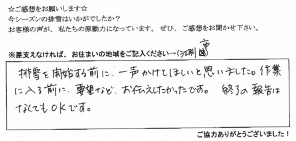 ☆ご感想をお願いします☆
今シーズンの排雪はいかがでしたか?
お客様の声が、私たちの原動力になっています。ぜひ、ご感想をお聞かせ下さい。
※差支えなければ、お住まいの地域をご記入ください→(
排雪を開始する前に、一声かけてほしいと思いました。作業
に入る前に、要望など、お伝えしたかったです。 終了の報告は
なくてもOKです。
ご協力ありがとうございました!